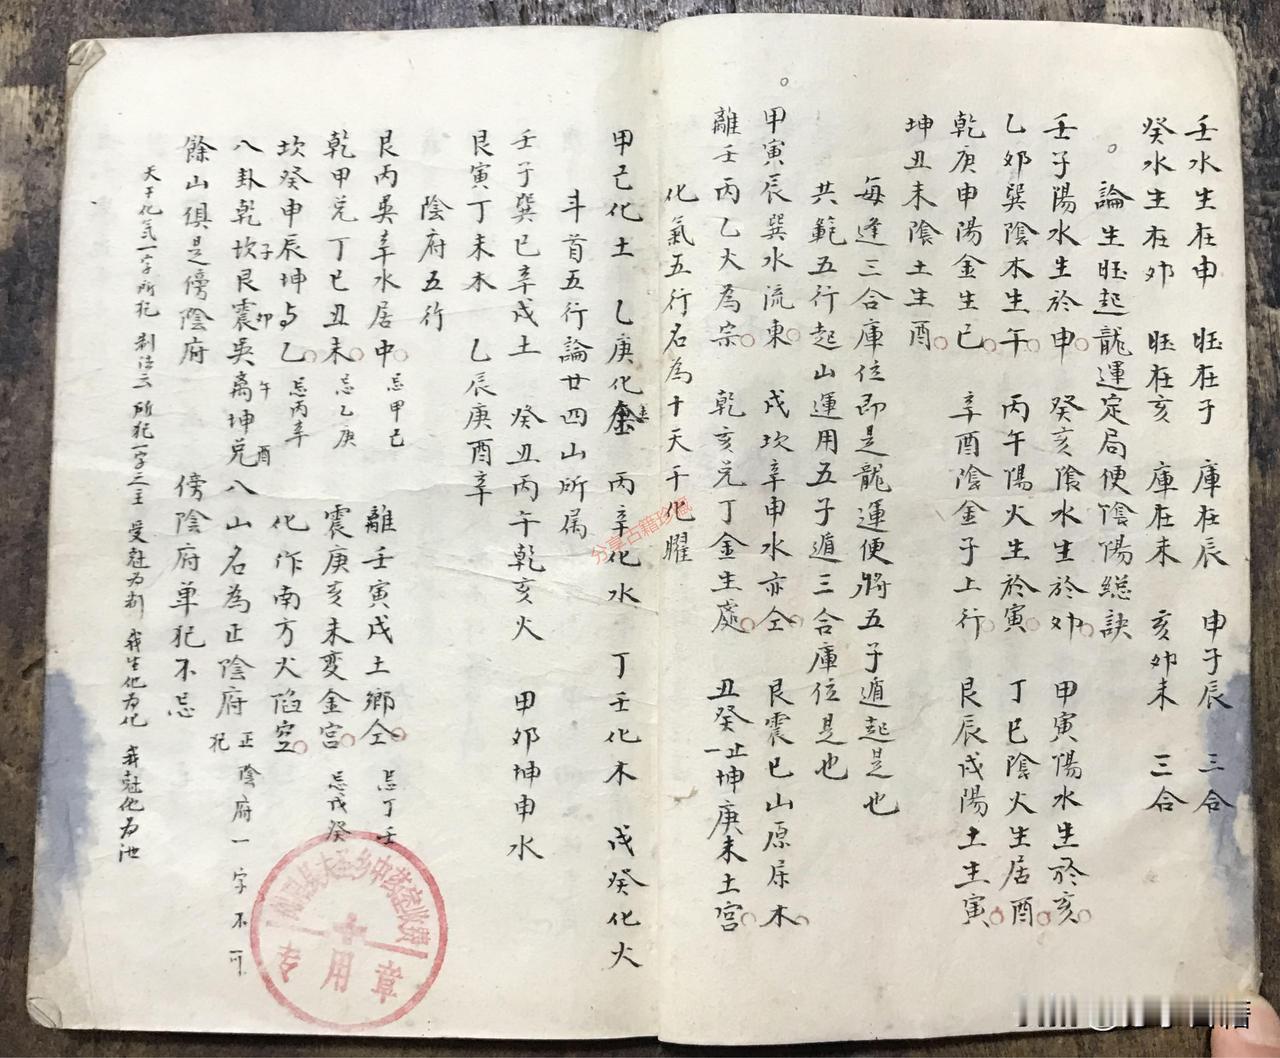 壬水生在申 旺在子 庫在辰 申子辰 三合
癸水生在卯 旺在亥 庫在未 亥卯未 三合
論生旺起龍運定局便陰陽總訣
壬子陽水生於申 癸亥陰水生於卯 甲寅陽水生於亥
乙卯巽陰木生午 丙午陽火生於寅 丁巳陰火生居酉
乾庚申陽金生巳 辛酉陰金子上行 艮辰戌陽土生寅
坤丑未陰土生酉
每逢三合庫位即是龍運便將五子遁起是也
共範五行起山運用五子遁三合庫位是也
甲寅辰巽水流東 戌坎辛申水亦仝 艮震巳山原屬木
離壬丙乙火為宗 乾亥兑丁金生處 丑癸一止坤庚未土宮
化氣五行名為十天干化曜
甲己化土 乙庚化金 丙辛化水 丁壬化木 戊癸化火
斗首五行論廿四山所属
壬子巽巳辛戌土 癸丑丙午乾亥火 甲卯坤申水
艮寅丁未木 乙辰庚酉辛
陰府五行
艮丙巽辛水居中 忌甲己 離壬寅戌土鄉仝 忌丁壬
乾甲兑丁巳丑未 忌乙庚 震庚亥未变金宮 忌戊癸
坎癸申辰坤与乙 忌丙辛 化作南方火焰空
八卦乾坎子艮震卯巽离午坤兑酉八山名為正陰府 正陰府一字不可犯
餘山俱是傍陰府 傍陰府单犯不忌
天干化氣一字所犯 制法云所犯一字三主 受尅为制 我生化为化 我尅他为池
分享古籍珍藏
中药
收费
专用章